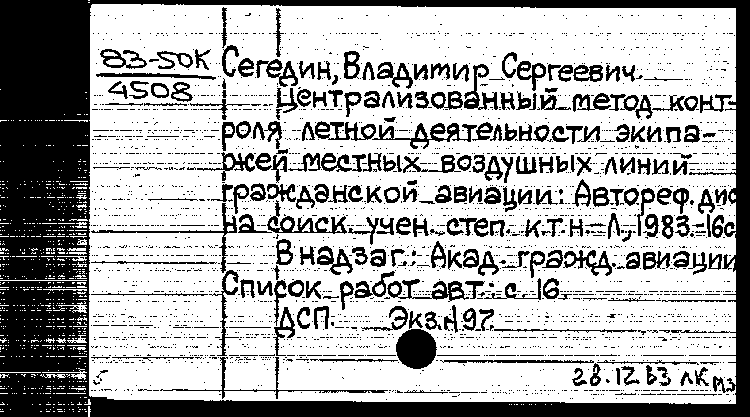 83-50К
4508
Сегедин, Владимир Сергеевич.
Централизованный метод конт-
роля летной деятельности экипа-
жей местных воздушных линий
гражданской авиации: Автореф. дис
на соиск. учен. степ. к.т.н. - Л., 1983.-16с
В надзаг.: Акад. гражд. авиации
Список работ авт.: с. 16.
ДСП. Экз.N 97.
28.12 83 ЛК